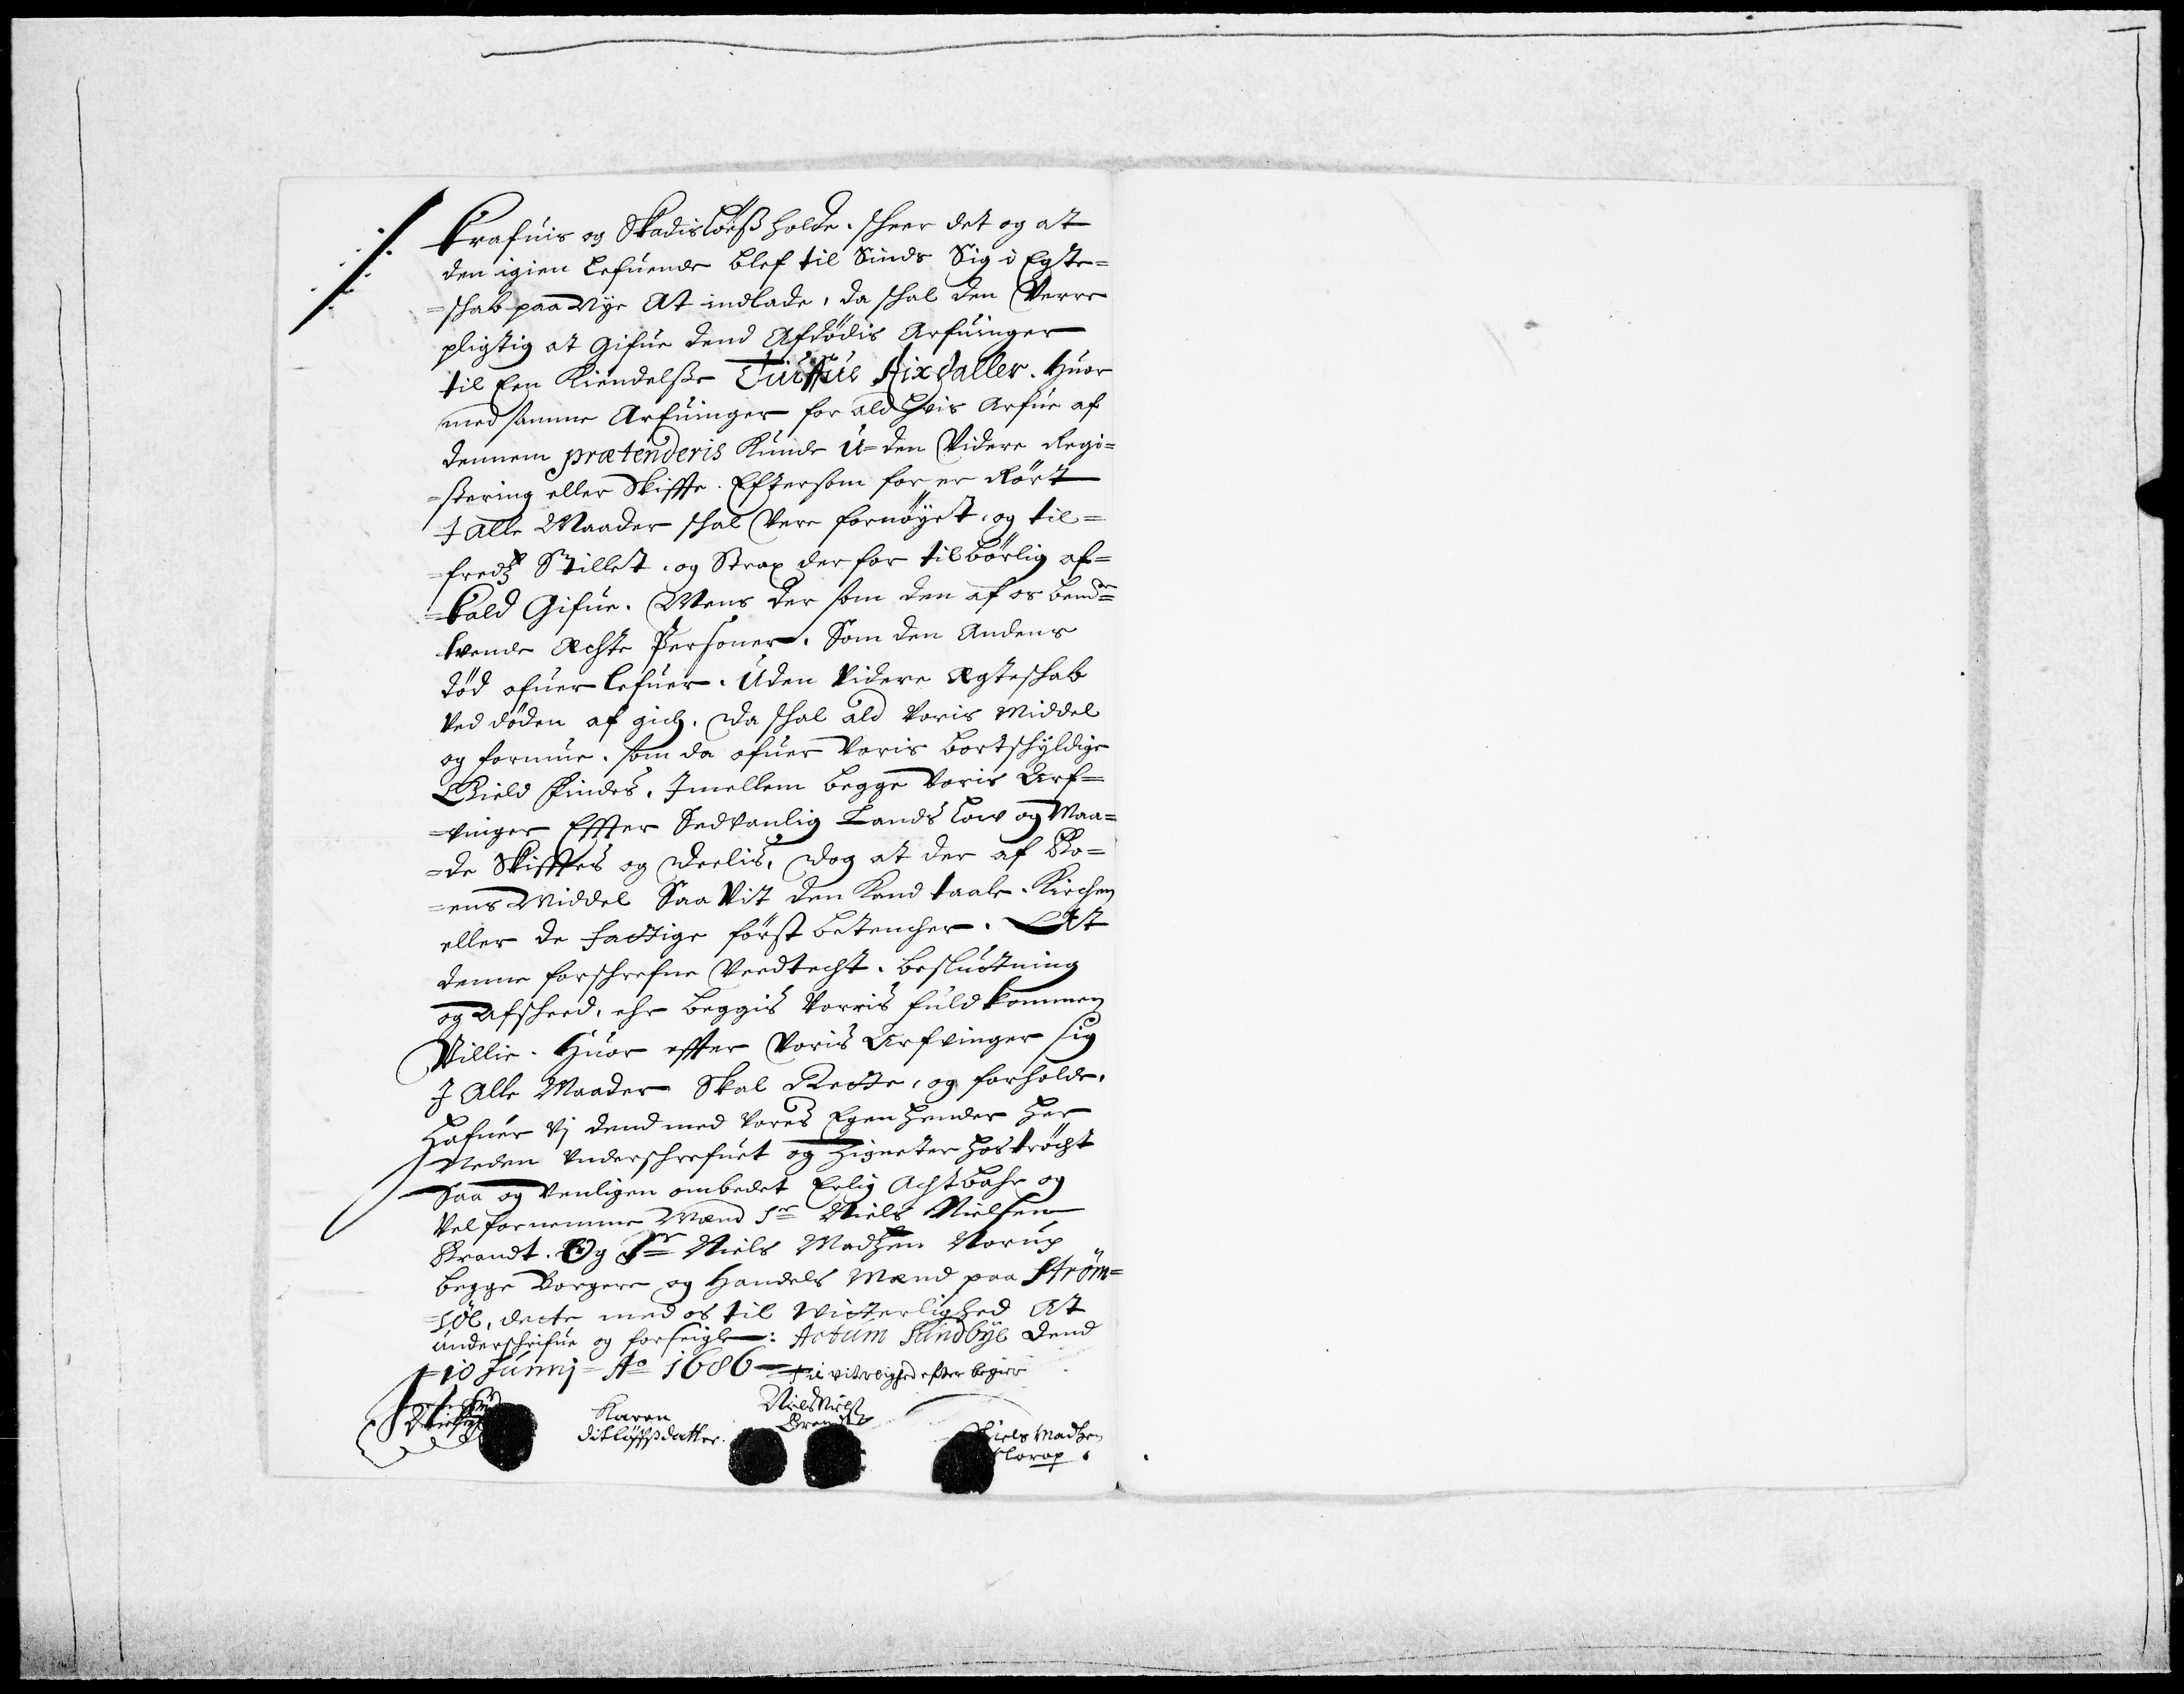 krafuis og Skadisløeß holde. scheer det og at
den igien lefuende blef til Sinds Sig i Egte=
=schab paa Nye At indlade, da schal den Verre
pligtig at Gifue dend Afdødis Arfuinger
til Een Kiendelße Tuiffue Rixdaller. Huor
med samme Arfuinger for ald hvis Arfue af
dennem prætenderis Kunde U=den Videre Regi=
=stering eller Skiffte. Eftersom for er Rørt
J alle Maader schal Vere fornøyet, og til=
=fredz Stillet, og Strax der for tilbørlig af=
=kald Gifue. Mens der som den af os bende
tvende Echte Personer. Som den Andens
død ofuer lefuer. Uden Videre Egteschab
ved døden af gick. Da schal ald Voris Middel
og formue. som da ofuer Voris bortschyldige
Gield findes. Jmellem begge Voris Arf=
=vinger Effter Sedvanlig Lands Low og Maa=
=de Skifftes og Deelis, Dog at der af Bo=
=ens Middel Saa Vit den Kand taale. Kirchen
eller de fattige først betencher. At
denne forschrefne Veedtecht. Besluttning
og Afscheed, ehr beggis Vorris fuldkommen
Villie. Huor effter Voris Arfvinger sig
J Alle Maader Skal Rette, og forholde.
Hafuer Vj dend med Vores Egen hender her
Neden Underschrefuet og Zigneter hostrøcht
Saa og Venligen ombedet Erlig Achtbahr og
Velfornemme Mænd Sr Niels Nielsen
Brandt. Og Sr Niels Madtzen Norup
begge Borgere og Handels Mænd paa Strøm=
=søe, dette med os til Witterlighed At
underschrifue og forseigle: Actum Sundbye Dend
=10 Junnj= Ao 1686 Til vitrlighed efter begier
Karen
ditløffsdatter.
Niels Nielß
Brandt
Niels Madtzen
Norop